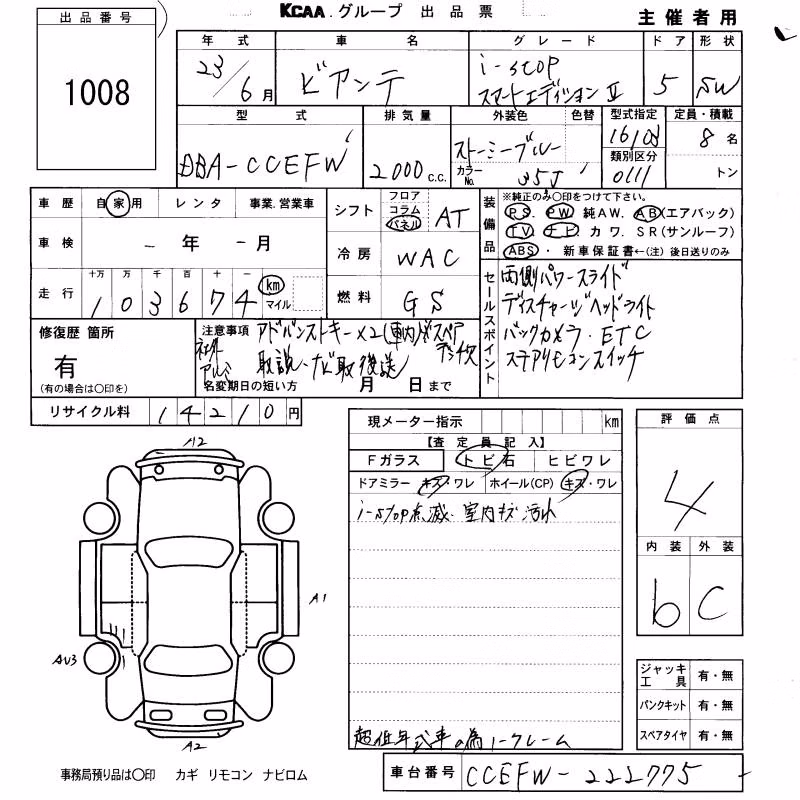 KCAA.グループ 出品票
主催者用
出品番号
1008
年式 車名 グレード ドア 形状
23/6月 ビアンテ i-stop スマートエディションⅡ 5 SW
型式 排気量 外装色 色替 型式指定 定員・積載
DBA-CCEFW 2000c.c. ストーミーブルー 16108 8名
カラーNo. 35J 類別区分 0111 トン
車歴 自家用 レンタ 事業.営業車
車検 - 年 - 月
十万 万 千 百 十 一
走行 103674 km マイル
シフト フロア コラム パネル AT
冷房 WAC
燃料 GS
装備品 ※純正のみ〇印をつけて下さい。
PS. PW 純AW. AB(エアバック)
TV ナビ カワ. SR(サンルーフ)
ABS・新車保証書←(注) 後日送りのみ
セールスポイント
両側パワースライド
ディスチャージヘッドライト
バックカメラ・ETC
ステアリモコンスイッチ
修復歴 箇所
有
(有の場合は〇印を)
注意事項 アドバンストキー×2(車内)
社外アルミ
取説・ナビ取後送
名変期日の短い方 月 日まで
リサイクル料 14210円
現メーター指示 km
【査定員記入】
Fガラス トビ石 ヒビワレ
ドアミラー キズ・ワレ ホイール(CP) キズ・ワレ
i-stop点滅・室内キズ汚れ
超低年式車の為ノークレーム
評価点
4
内装 外装
b C
ジャッキ工具 有・無
パンクキット 有・無
スペアタイヤ 有・無
A12
A1
AU3
A2
事務局預り品は〇印 カギ リモコン ナビロム
車台番号 CCEFW-222775